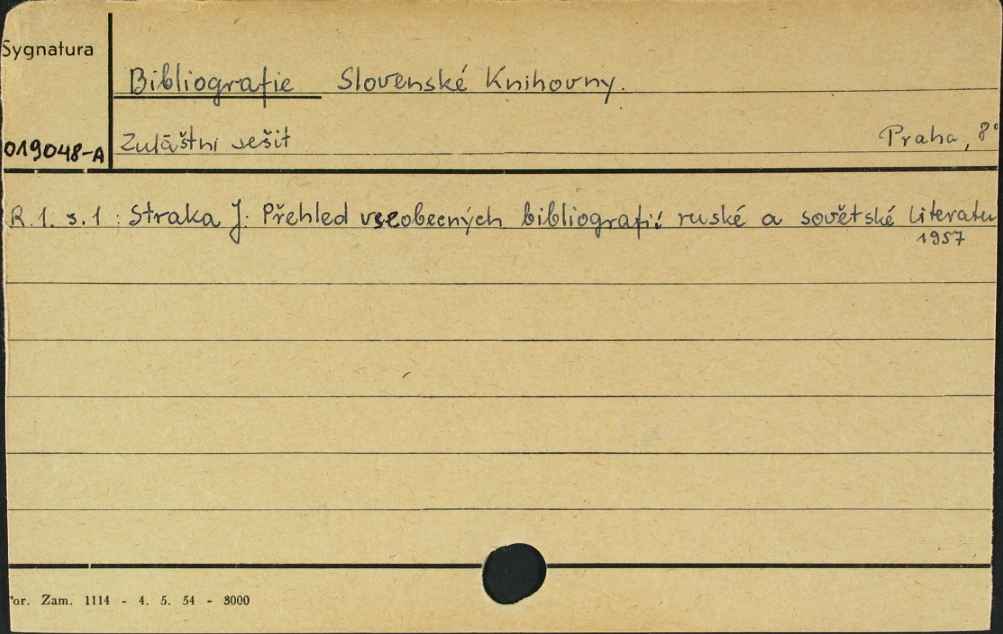 Sygnatura
Bibliografie Slovenské Knihovny.
019048-A
Zuláštní sešit
Praha, 8°
R. 1. s. 1 : Straka J: Přehled vseobecných bibliografií ruské a sovětské literatu
1957
or. Zam. 1114 - 4. 5. 54 - 3000